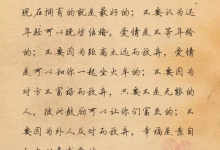 现在拥有的就是最好的；不要认为还
年轻可以晚些结婚，爱情是不等年龄
的；不要因为距离太远而放弃，爱情
是可以和你一起坐火车的；不要因为
对方不富裕而放弃，只要不是无能的
人，彼此鼓励可以让你们富足的；不
要因为外人反对而放弃，幸福是靠自